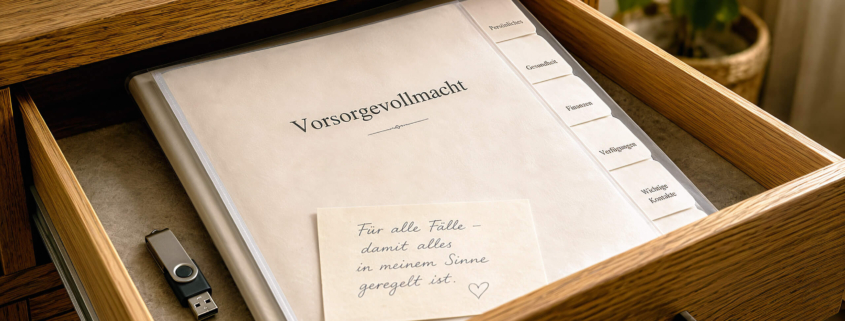 Vorsorgevollmacht
Persönliches
Gesundheit
Finanzen
Verfügungen
Wichtige
Kontakte
Für alle Fälle –
damit alles
in meinem Sinne
geregelt ist. ♡